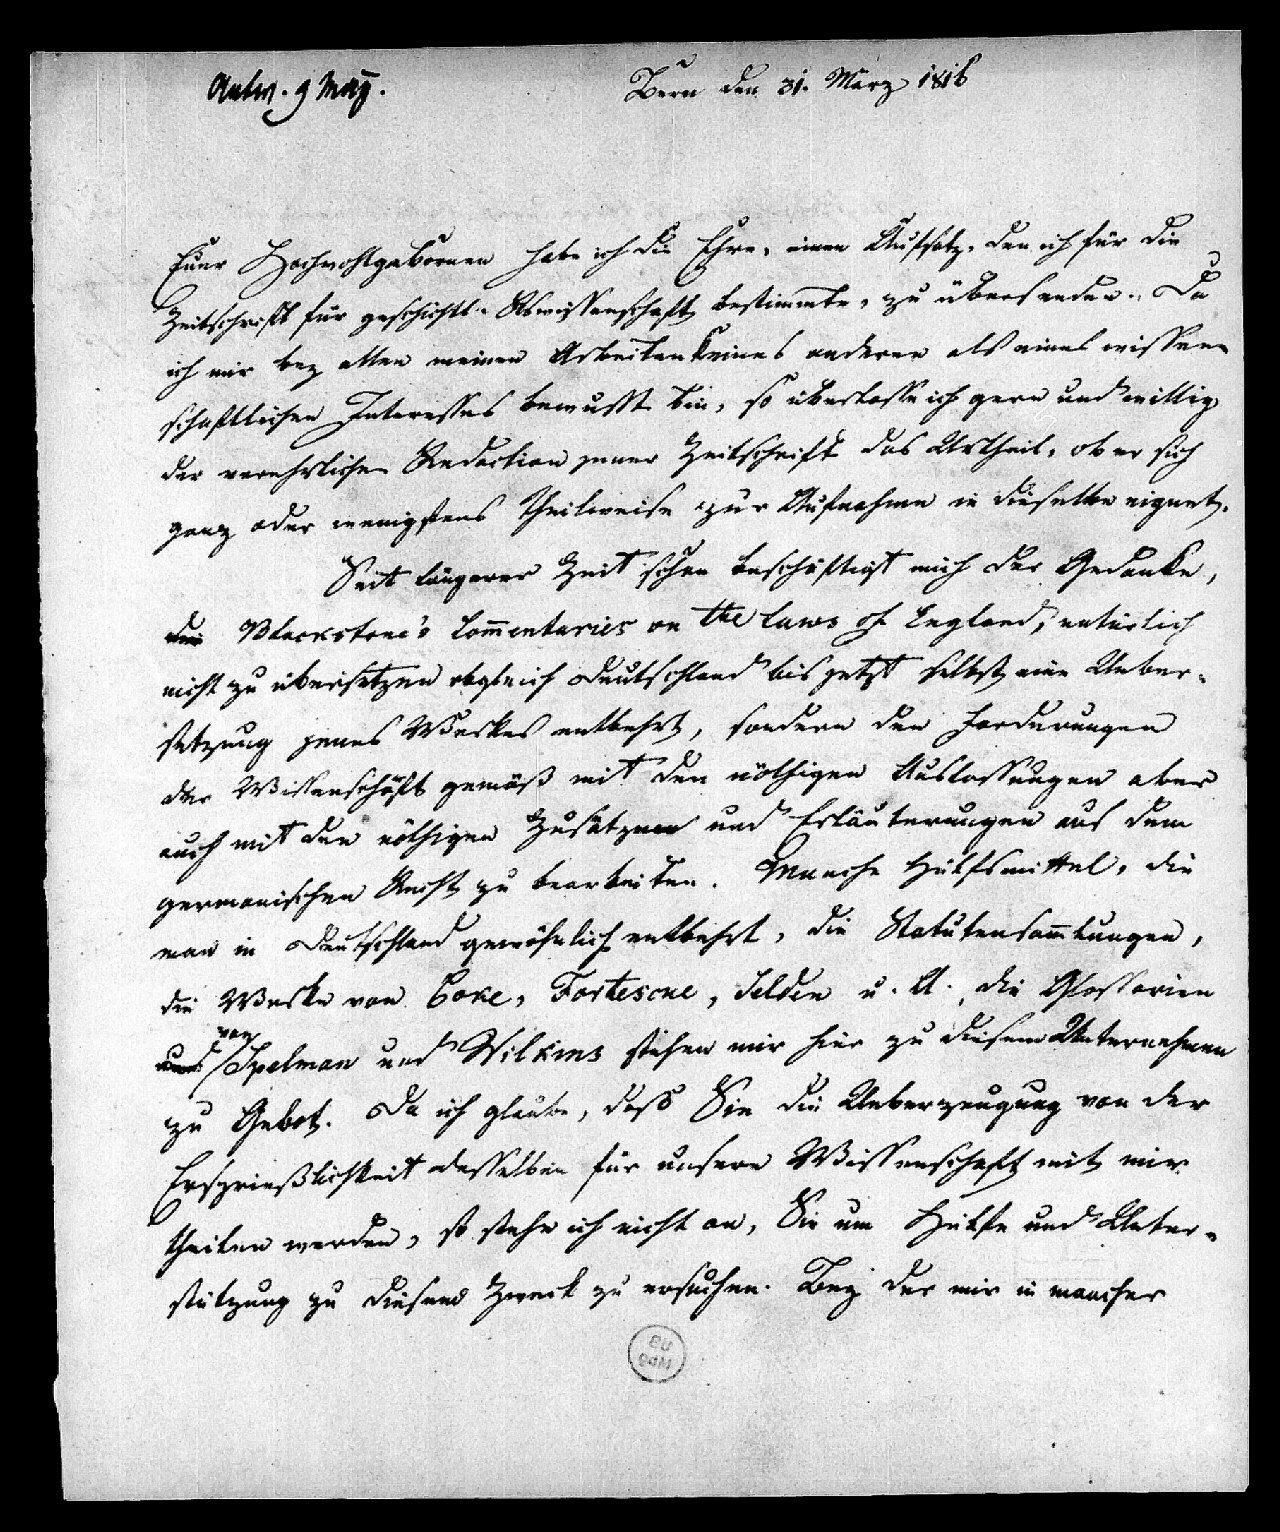 Antw. 9 May.
Bern den 31. März 1816
Euer Hochwohlgebornen habe ich die Ehre, einen Aufsatz, den ich für die
Zeitschrift für geschichtl. Rswissenschaft bestimmte, zu übersenden. Da
ich mir bey allen meinen Arbeiten keines anderen als eines wissen-
schaftlichen Interesses bewusst bin, so überlasse ich gern und willig
der verehrlichen Redaction jener Zeitschrift das Urtheil, ob er sich
ganz oder wenigstens theilweise zur Aufnahme in dieselbe eignet.
Seit längerer Zeit schon beschäftigt mich der Gedanke,
die Blackstone's Commentaries on the laws of England, natürlich
nicht zu übersetzen obgleich Deutschland bis jetzt selbst eine Ueber-
setzung jenes Werkes entbehrt, sondern den Forderungen
der Wissenschaft gemäß mit den nöthigen Auslassungen aber
auch mit den nöthigen Zusätzen und Erläuterungen aus dem
germanischen Recht zu bearbeiten. Manche Hülfsmittel, die
man in Deutschland gewöhnlich entbehrt, die Statutensammlungen,
die Werke von Coke, Fortescue, Selden u. A., die Glossarien
und von Spelman und Wilkins stehen mir hier zu diesem Unternehmen
zu Gebot. Da ich glaube, dass Sie die Ueberzeugung von der
Ersprießlichkeit desselben für unsere Wissenschaft mit mir
theilen werden, so stehe ich nicht an, Sie um Hülfe und Unter-
stützung zu diesem Zweck zu ersuchen. Bey der mir in mancher